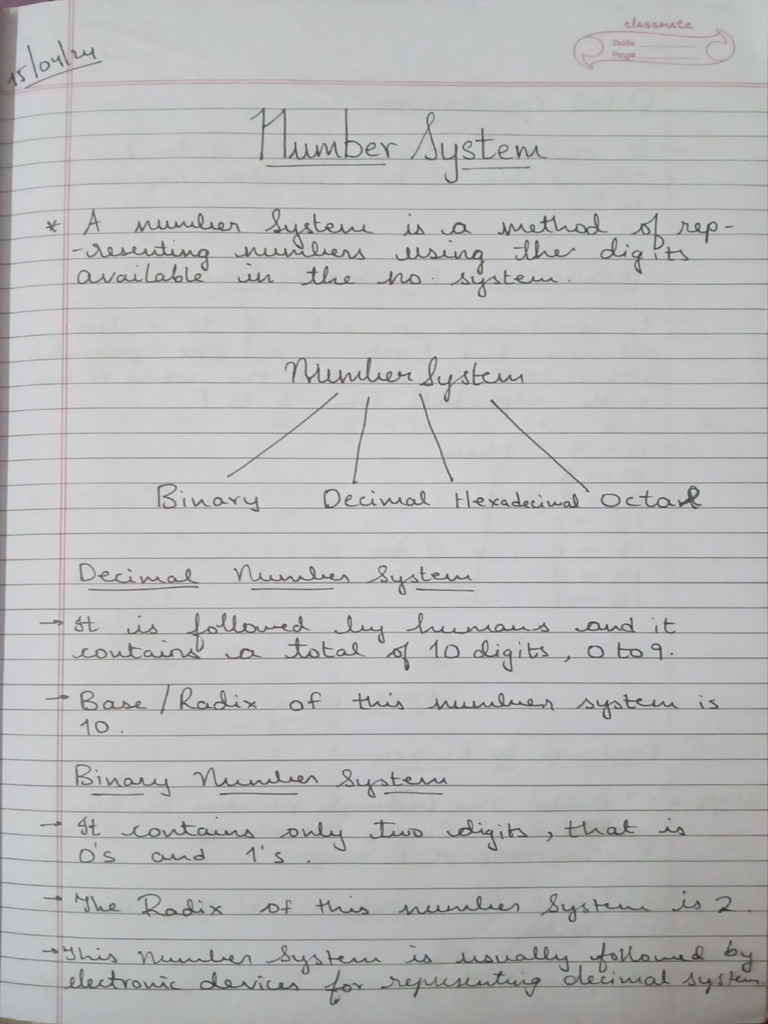 classmate
Date
Page
15/04/24
Number System
* A number System is a method of rep-
-resenting numbers using the digits
available in the no. system.
Number System
Binary Decimal Hexadecimal Octal
Decimal Number System
→ It is followed by humans and it
contains a total of 10 digits, 0 to 9.
→ Base/Radix of this number system is
10.
Binary Number System
→ It contains only two digits, that is
0's and 1's.
→ The Radix of this number System is 2.
→ This Number System is usually followed by
electronic devices for representing decimal system